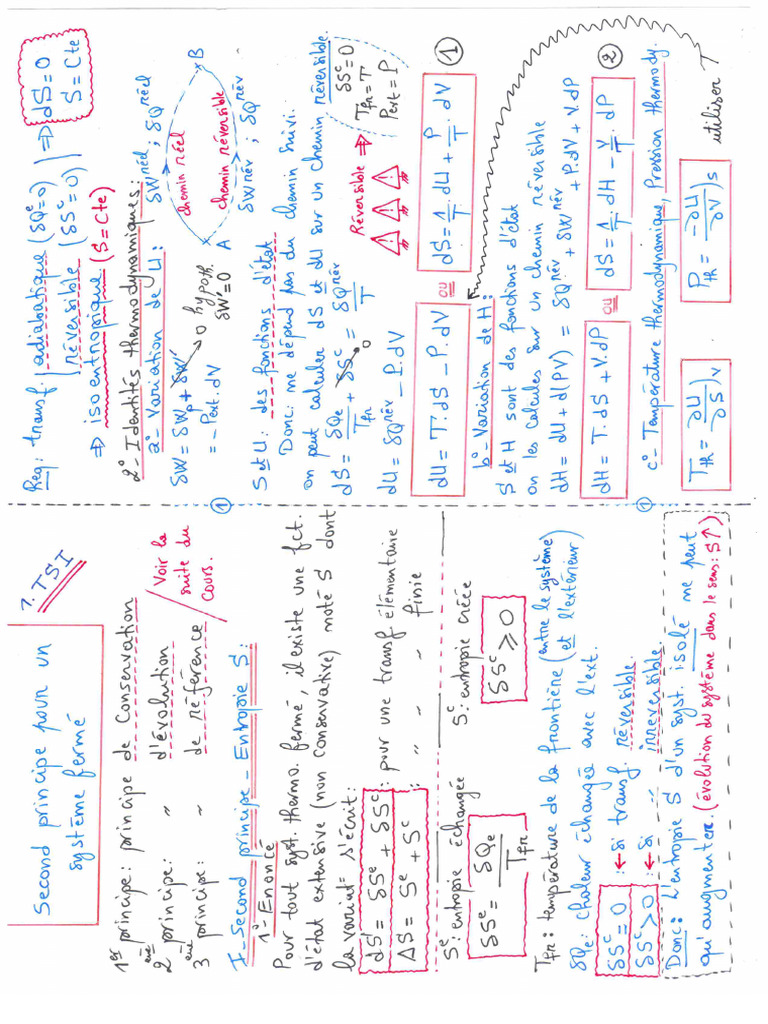 1. TSI
Second principe pour un
système fermé
1er principe: principe de conservation
2ème principe: " d'évolution
3ème principe: " de référence
Voir la
suite du
cours.
I- Second principe - Entropie S:
1°- Enoncé
Pour tout syst. thermo. fermé, il existe une fct.
d'état extensive (non conservative) noté S dont
la variat° s'écrit:
dS = δSe + δSc : pour une transf élémentaire
ΔS = Se + Sc : " " " finie
Se: entropie échangée
Sc: entropie créée
δSe = δQe / Tfr
δSc ≥ 0
Tfr: température de la frontière (entre le système et l'extérieur)
δQe: chaleur échangée avec l'ext.
δSc = 0 : ← si transf. réversible.
δSc > 0 : ← si " irréversible.
Donc: L'entropie S d'un syst. isolé ne peut
qu'augmenter. (évolution du système dans le sens: S↑)
Req: transf. adiabatique (δQe=0)
réversible (δSc=0)
⇒ dS=0
S=Cte
⇒ isoentropique (S=Cte)
2°- Identités thermodynamiques:
a°- Variation de U:
δW = δWp + δW' 0 hypoth. δW'=0
= - Pext.dV
δWréel ; δQréel
chemin réel
chemin réversible
δWrév ; δQrév
A
B
S et U: des fonctions d'état
Donc: ne dépend pas du chemin suivi.
on peut calculer dS et dU sur un chemin réversible.
dS = δQe / Tfr + δSc 0 = δQrév / T
Réversible ⇒
δSc=0
Tfr=T
Pext=P
dU = δQrév - P.dV
dU = T.dS - P.dV ou dS = 1/T dU + P/T . dV 1
b°- Variation de H:
S et H sont des fonctions d'état
on les calcules sur un chemin réversible
dH = dU + d(PV) = δQrév + δWrév + P.dV + V.dP
dH = T.dS + V.dP ou dS = 1/T dH - V/T . dP 2
c°- Température thermodynamique, Pression thermody.
Tth = ∂U/∂S)V
Pth = -∂U/∂V)S
utiliser
1
1